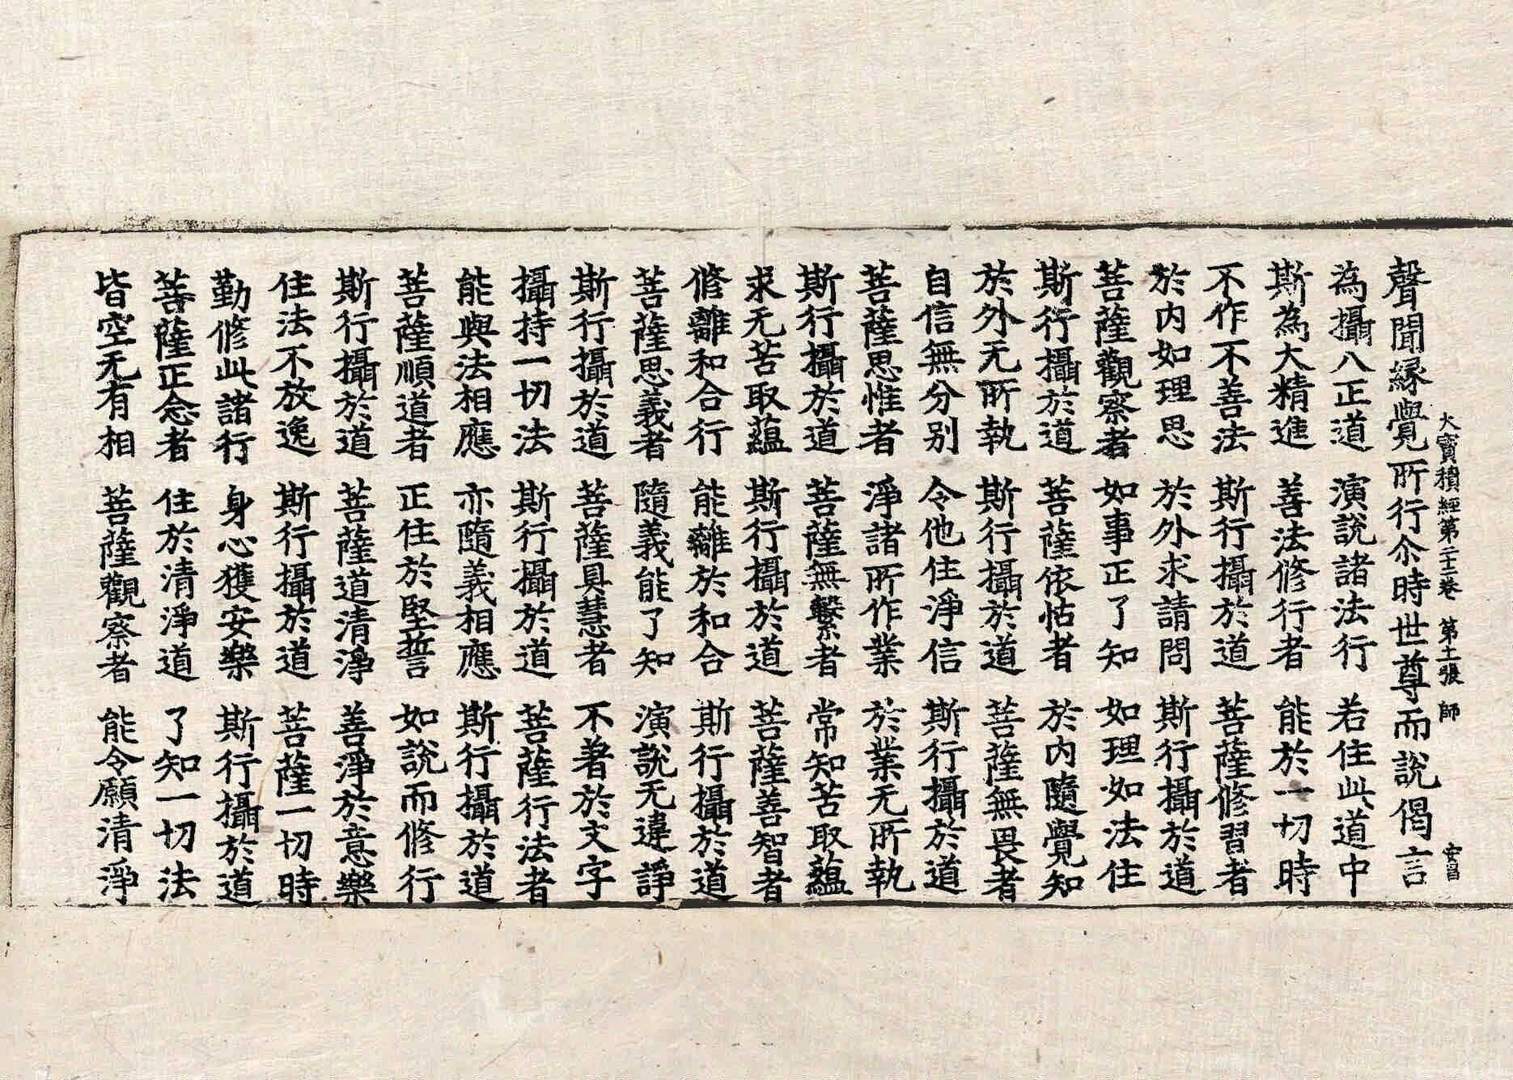 大寶積經第二十三卷 第十二張 師 安昌
聲聞緣覺所行尒時世尊而說偈言
為攝八正道 演說諸法行 若住此道中
斯為大精進 善法修行者 能於一切時
不作不善法 斯行攝於道 菩薩修習者
於內如理思 於外求請問 斯行攝於道
菩薩觀察者 如事正了知 如理如法住
斯行攝於道 菩薩依怙者 於內隨覺知
於外无所執 斯行攝於道 菩薩無畏者
自信無分別 令他住淨信 斯行攝於道
菩薩思惟者 淨諸所作業 於業无所執
斯行攝於道 菩薩無繫者 常知苦取蘊
求无苦取蘊 斯行攝於道 菩薩善智者
修離和合行 能離於和合 斯行攝於道
菩薩思義者 隨義能了知 演說无違諍
斯行攝於道 菩薩具慧者 不著於文字
攝持一切法 斯行攝於道 菩薩行法者
能與法相應 亦隨義相應 斯行攝於道
菩薩順道者 正住於堅誓 如說而修行
斯行攝於道 菩薩道清淨 善淨於意樂
住法不放逸 斯行攝於道 菩薩一切時
勤修此諸行 身心獲安樂 斯行攝於道
菩薩正念者 住於清淨道 了知一切法
皆空无有相 菩薩觀察者 能令願清淨